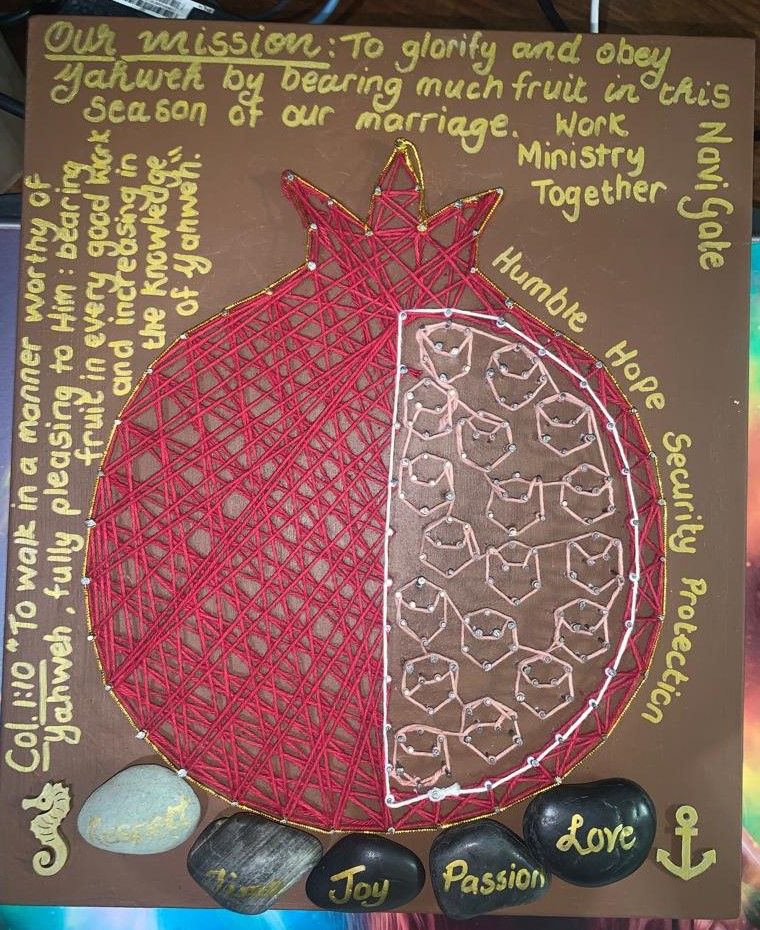 Our mission: To glorify and obey
Yahweh by bearing much fruit in this
season of our marriage. Work
Ministry
Together
Navigate
Humble Hope Security Protection
Col. 1:10 "To walk in a manner worthy of
Yahweh, fully pleasing to Him: bearing
fruit in every good work
and increasing in
the knowledge
of Yahweh."
Respect
Time
Joy
Passion
Love